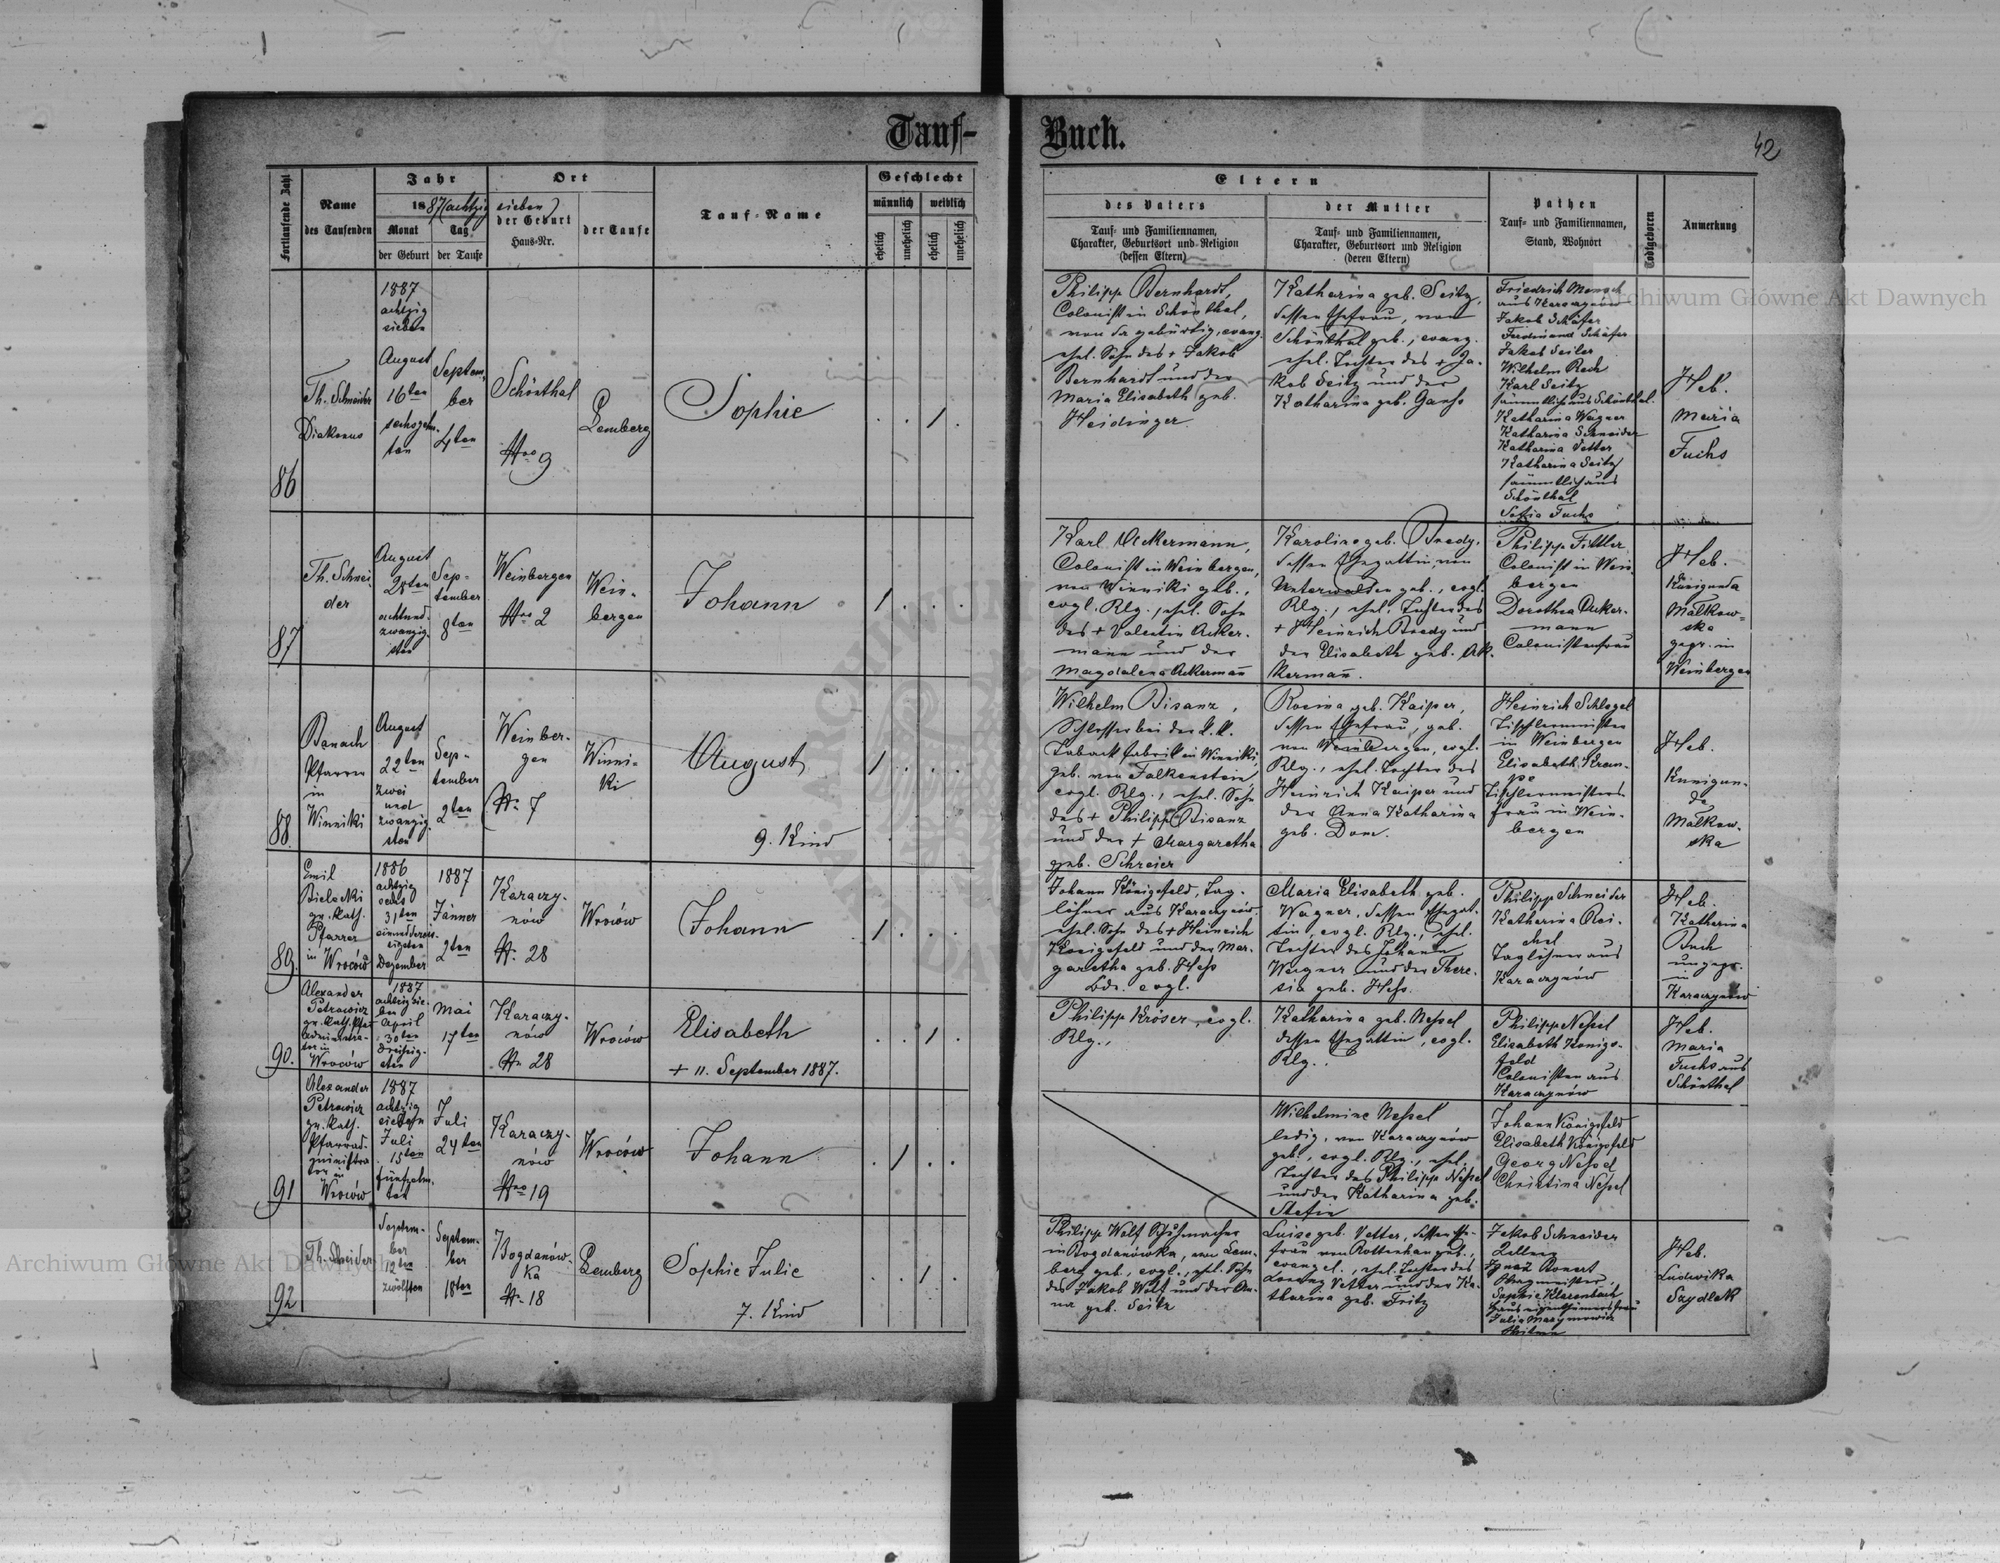 Tauf-
Buch.
42
Fortlaufende Zahl
Name
des Taufenden
Jahr
1887 (achtzig sieben)
Monat
Tag
der Geburt
der Taufe
Ort
der Geburt
Haus-Nr.
der Taufe
Tauf-Name
Geschlecht
männlich
weiblich
ehelich
unehelich
ehelich
unehelich
Eltern
des Vaters
Tauf- und Familiennamen,
Charakter, Geburtsort und Religion
(dessen Eltern)
der Mutter
Tauf- und Familiennamen,
Charakter, Geburtsort und Religion
(deren Eltern)
Pathen
Tauf- und Familiennamen,
Stand, Wohnort
Todtgeboren
Anmerkung
86
Th. Schneider
Diakonus
1887
achtzig
sieben
August
16ten
sechszehn-
ten
Septem-
ber
4ten
Schönthal
Nro 9
Lemberg
Sophie
Philipp Bernhardt,
Colonist in Schönthal,
von da gebürtig, evang.
ehel. Sohn des + Jakob
Bernhardt und der
Maria Elisabeth geb.
Heidinger.
Katharina geb. Seitz,
dessen Ehefrau, von
Schönthal geb., evang.
ehel. Tochter des + Ja-
kob Seitz und der
Katharina geb. Ganss
Friedrich Mensch
aus Karaczynów
Jakob Schäfer
Ferdinand Schäfer
Jakob Seiler
Wilhelm Reck
Karl Seitz
sämmtlich aus Schönthal.
Katharina Wagner
Katharina Schneider
Katharina Vetter
Katharina Seitz
sämmtlich aus
Schönthal
Sofia Fuchs
Heb.
Maria
Fuchs
87
Th. Schnei-
der
August
28ten
achtund-
zwanzig-
sten
Sep-
tember
8ten
Weinbergen
Nro 2
Wein-
bergen
Johann
Karl Ackermann,
Colonist in Weinbergen,
von Winniki geb.,
evgl. Rlg., ehel. Sohn
des + Valentin Acker-
mann und der
Magdalena Ackermann
Karoline geb. Bredy,
dessen Ehegattin, von
Unterwalden geb., evgl.
Rlg., ehel. Tochter des
+ Heinrich Bredy und
der Elisabeth geb. Ak-
kermann.
Philipp Fittler
Colonist in Wein-
bergen
Dorothea Acker-
mann
Colonistenfrau
Heb.
Kunigunda
Malkow-
ska
gepr. in
Weinbergen
88.
Banach
Pfarrer
in
Winniki
August
22ten
zwei
und
zwanzig-
sten
Sep-
tember
2ten
Weinber-
gen
Nr. 7
Winni-
ki
August
9. Kind
Wilhelm Bisanz,
Schlosser bei der k.k.
Taback fabrik in Winniki,
geb. von Falkenstein
evgl. Rlg., ehel. Sohn
des + Philipp Bisanz
und der + Margaretha
geb. Schreier
Rosina geb. Kaiper,
dessen Ehefrau, geb.
von Weinbergen, evgl.
Rlg., ehel. Tochter des
Heinrich Kaiper und
der Anna Katharina
geb. Dom.
Heinrich Schlegel
Tischlermeister
in Weinbergen
Elisabeth Kram-
pe
Tischlermeisters-
frau in Wein-
bergen
Heb.
Kunigun-
da
Malkow-
ska
89.
Emil
Bielecki
gr. kath.
Pfarrer
in Wroców
1886
achtzig
sechs
31ten
einunddreis-
sigsten
Dezember
1887
Jänner
2ten
Karaczy-
nów
Nr. 28
Wroców
Johann
Johann Königsfeld, Tag-
löhner aus Karaczynów
ehel. Sohn des + Heinrich
Königsfeld und der Mar-
garetha geb. Hess
Bde. evgl.
Maria Elisabeth geb.
Wagner, dessen Ehegat-
tin, evgl. Rlg., ehel.
Tochter des Johann
Wagner und der There-
sia geb. Hess.
Philipp Schneider
Katharina Rei-
chel
Taglöhner aus
Karaczynów
Heb.
Katharina
Buch
ungepr.
in
Karaczynów
90.
Alexander
Petrowicz
gr. kath. Pfar-
administra-
tor in
Wroców
1887
achtzig sie-
ben
April
30ten
dreissig-
sten
Mai
17ten
Karaczy-
nów
Nr. 28
Wroców
Elisabeth
+ 11. September 1887.
Philipp Kröser, evgl.
Rlg.,
Katharina geb. Nessel
dessen Ehegattin, evgl.
Rlg..
Philipp Nessel
Elisabeth Königs-
feld
Colonisten aus
Karaczynów
Heb.
Maria
Fuchs aus
Schönthal
91
Alexander
Petrowicz
gr. kath.
Pfarrad-
ministra-
tor in
Wroców
1887
achtzig
sieben
Juli
15ten
fünfzehn-
ten
Juli
24ten
Karaczy-
nów
Nro 19
Wroców
Johann
Wilhelmine Nessel
ledig, von Karaczynów
geb., evgl. Rlg., ehel.
Tochter des Philipp Nessel
und der Katharina geb.
Stefin
Johann Königsfeld
Elisabeth Königsfeld
Georg Nessel
Christina Nessel
92
Th. Schneider
Septem-
ber
12ten
zwölften
Septem-
ber
18ten
Bogdanów-
ka
Nr. 18
Lemberg
Sophie Julie
7. Kind
Philipp Wolf Schuhmacher
in Bogdanówka, von Lem-
berg geb., evgl., ehel. Sohn
des Jakob Wolf und der An-
na geb. Seitz
Luise geb. Vetter, dessen Ehe-
frau von Rottenhan geb.,
evangel., ehel. Tochter des
Lorenz Vetter und der Ka-
tharina geb. Fritz
Jakob Schneider
Zellner
Ignaz
Sophie Klarenbach
Hauseigenthümersfrau
Julie Marynowicz
Heb.
Ludwika
Szydlak
Archiwum Główne Akt Dawnych
Archiwum Główne Akt Dawnych